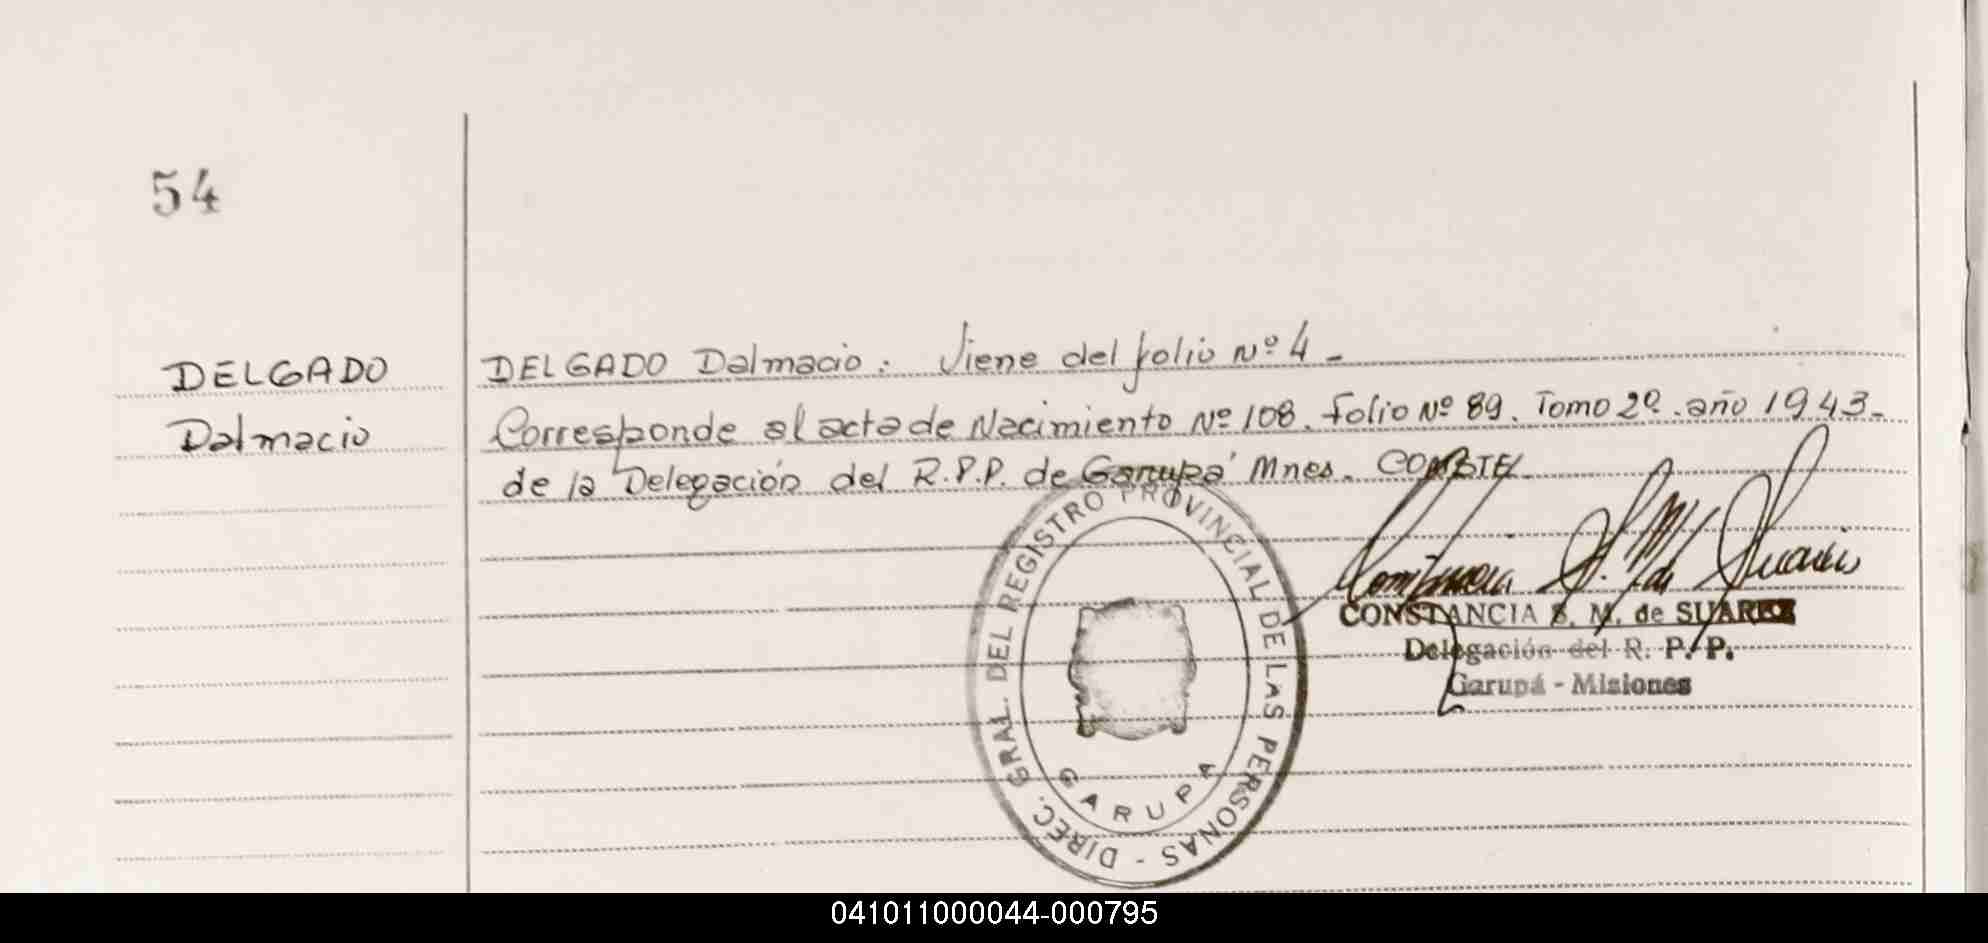 54
DELGADO
Dalmacio
DELGADO Dalmacio: Viene del folio Nº 4 -
Corresponde al acta de Nacimiento Nº 108. folio Nº 89. Tomo 2º. año 1943.-
de la Delegación del R.P.P. de Garupá Mnes. CONSTE.
DIREC. GRAL. DEL REGISTRO PROVINCIAL DE LAS PERSONAS -
GARUPA
Constancia S. M. de Suarez
CONSTANCIA S. M. de SUAREZ
Delegación del R. P. P.
Garupá - Misiones
041011000044-000795